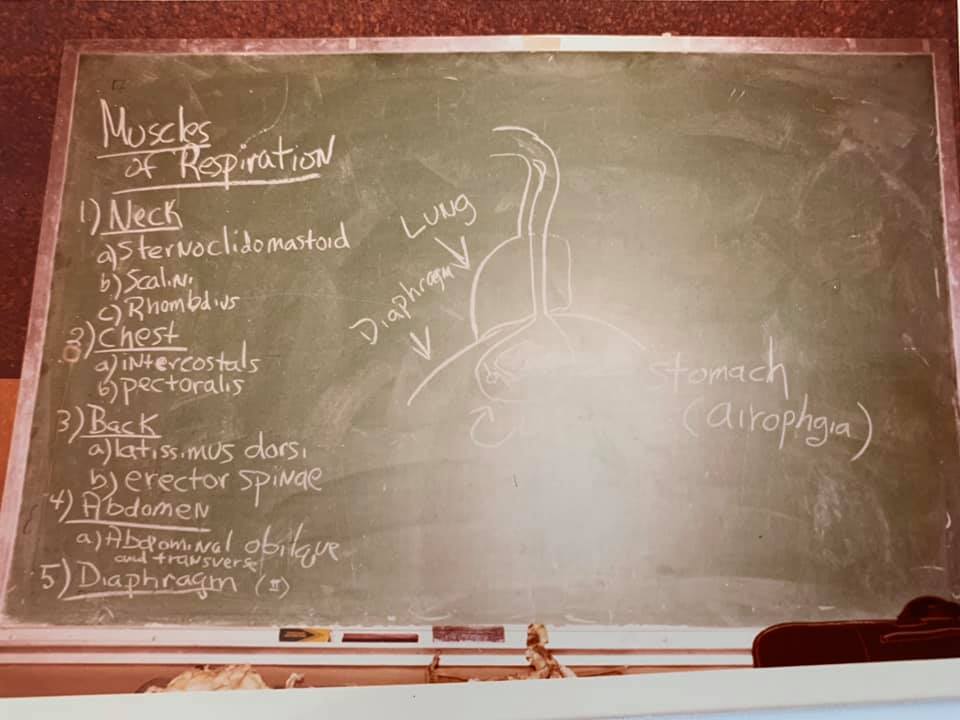 Muscles
of Respiration
1) Neck
a) Sternoclidomastoid
b) Scalini
c) Rhombdius
2) Chest
a) intercostals
b) pectoralis
3) Back
a) latissimus dorsi
b) erector spinae
4) Abdomen
a) Abdominal obilque
and transverse
5) Diaphragm (II)
LUNG
Diaphragm
stomach
(airophgia)